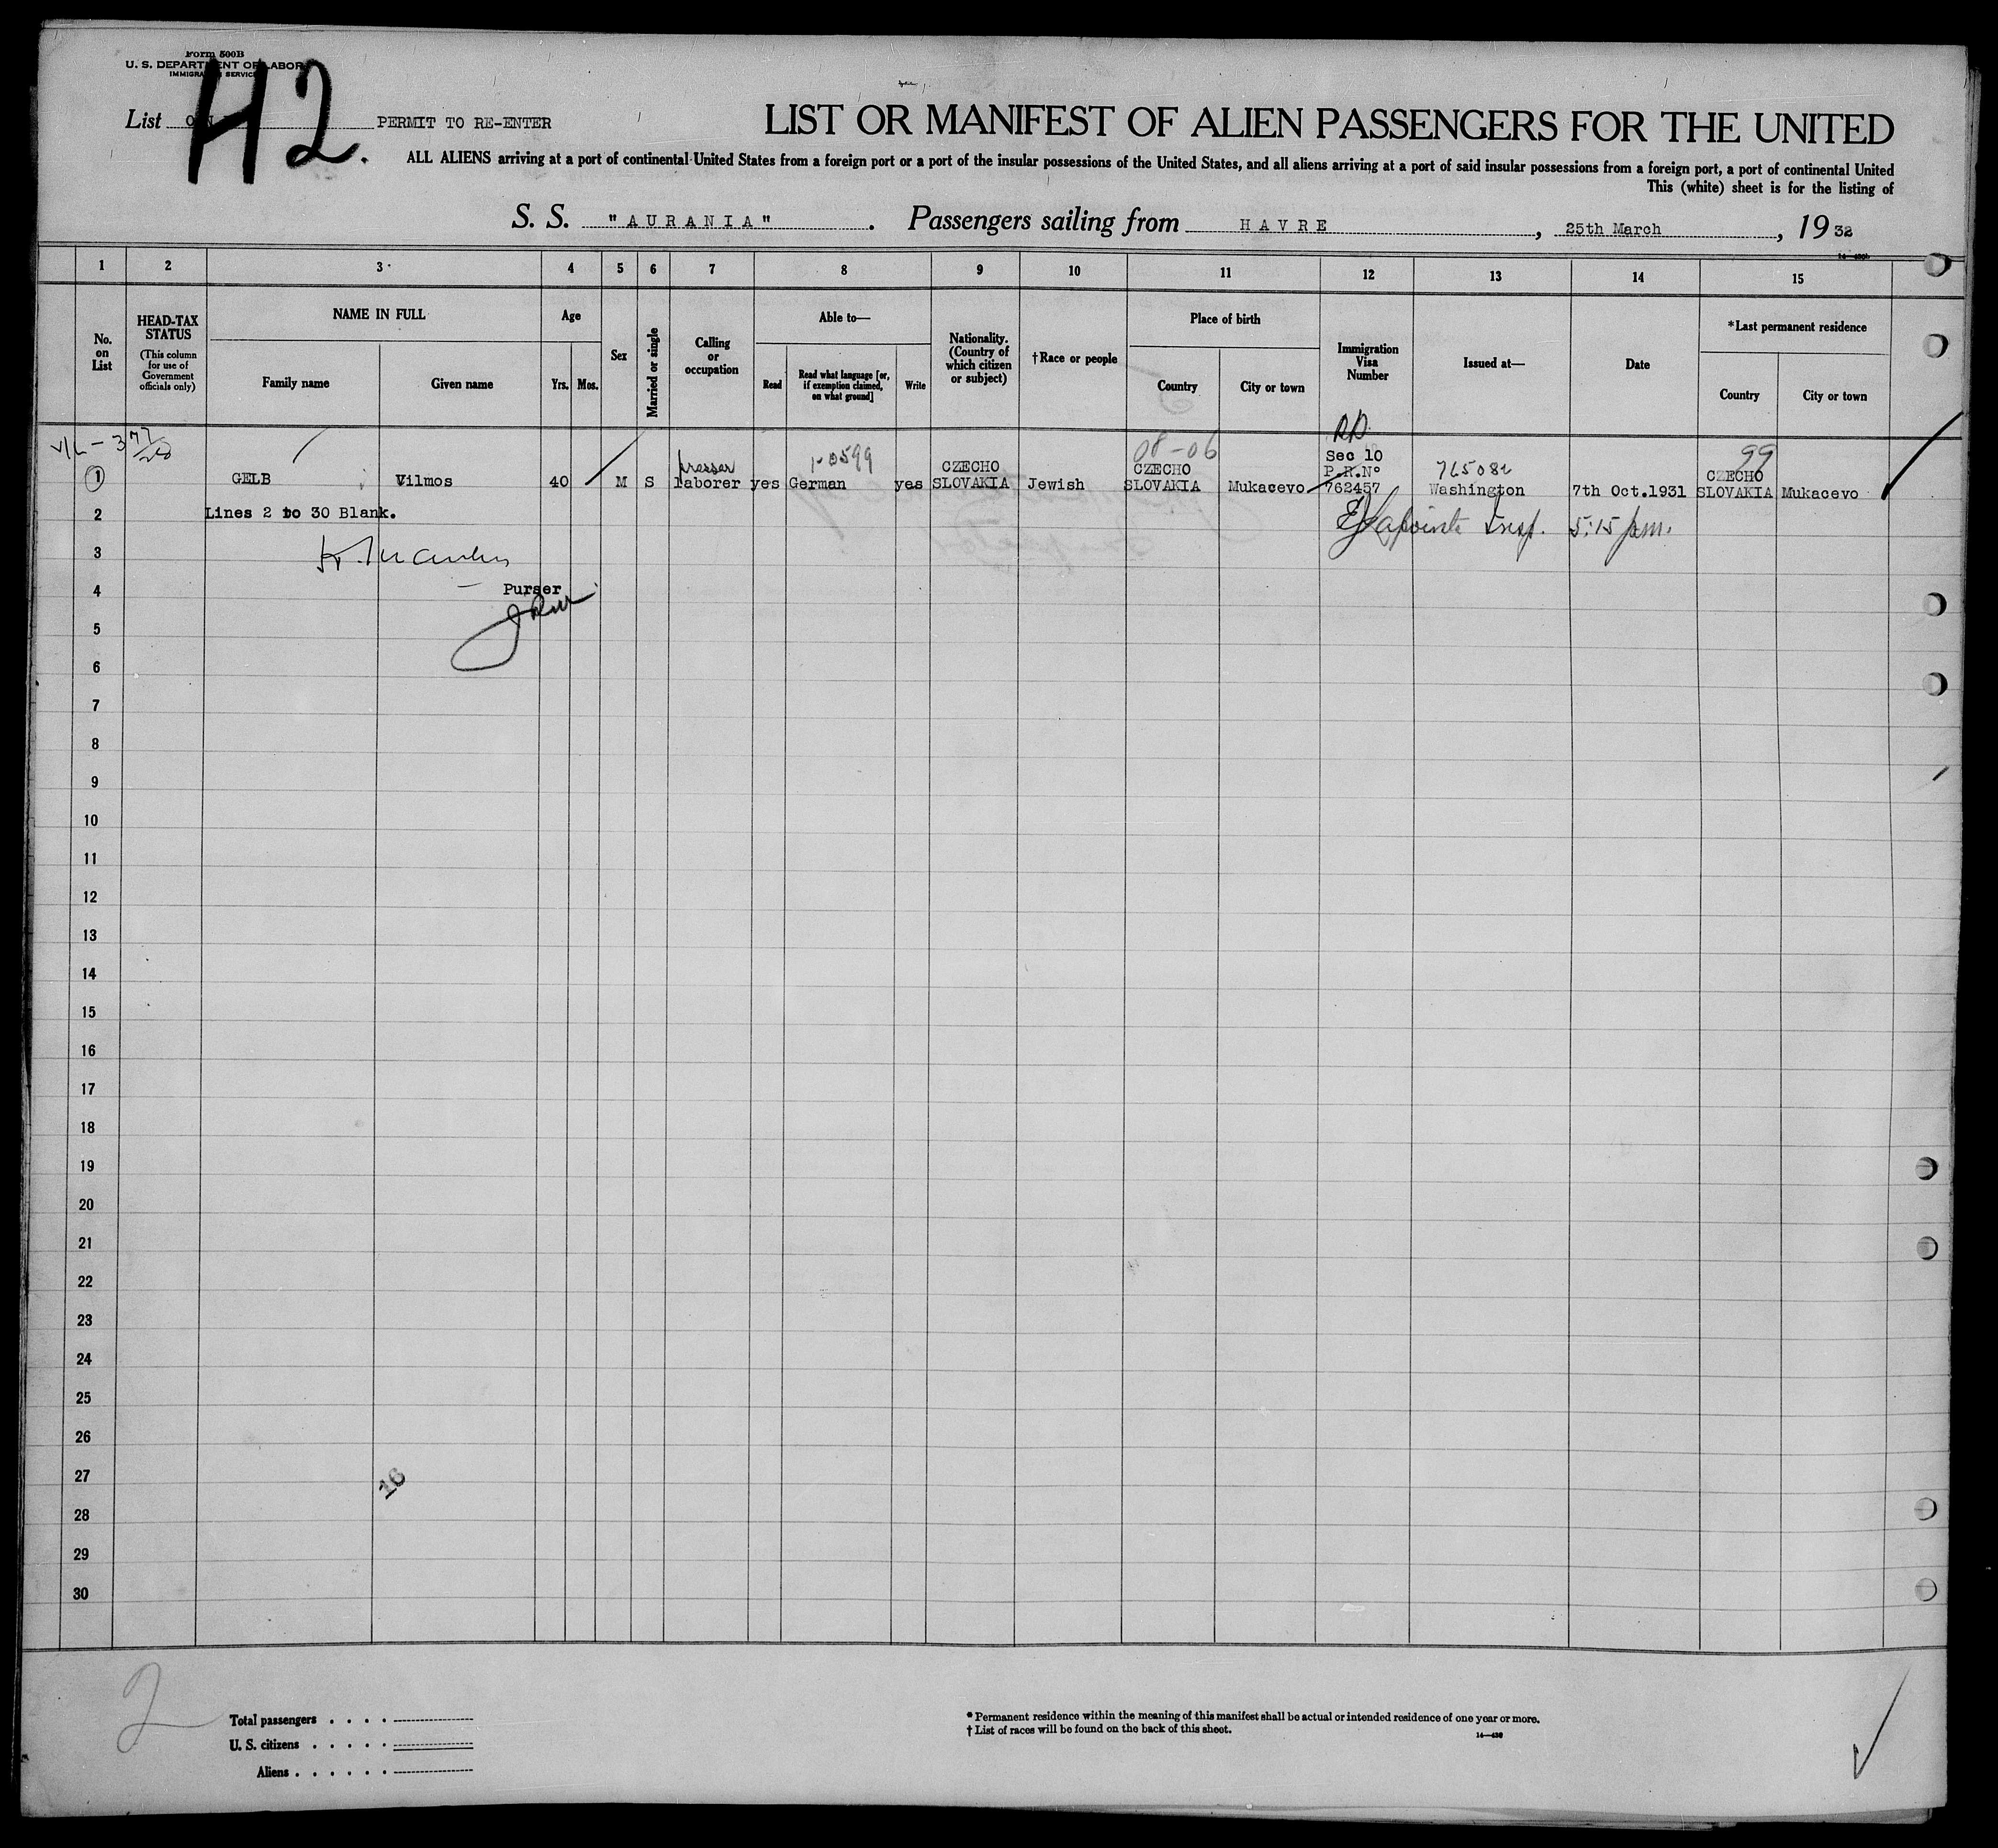 Form 500B
U. S. DEPARTMENT OF LABOR
IMMIGRATION SERVICE
H2.
List PERMIT TO RE-ENTER
LIST OR MANIFEST OF ALIEN PASSENGERS FOR THE UNITED
ALL ALIENS arriving at a port of continental United States from a foreign port or a port of the insular possessions of the United States, and all aliens arriving at a port of said insular possessions from a foreign port, a port of continental United
This (white) sheet is for the listing of
S. S. "AURANIA". Passengers sailing from HAVRE, 25th March, 1932
1 2 3 4 5 6 7 8 9 10 11 12 13 14 15
No. on List
HEAD-TAX STATUS (This column for use of Government officials only)
NAME IN FULL
Family name
Given name
Age
Yrs. Mos.
Sex
Married or single
Calling or occupation
Able to—
Read
Read what language [or, if exemption claimed, on what ground]
Write
Nationality. (Country of which citizen or subject)
†Race or people
Place of birth
Country
City or town
Immigration Visa Number
Issued at—
Date
*Last permanent residence
Country
City or town
08-06
99
presser
Sec 10
P.R.No
765082
1 GELB Vilmos 40 M S laborer yes German yes CZECHO SLOVAKIA Jewish CZECHO SLOVAKIA Mukacevo 762457 Washington 7th Oct.1931 CZECHO SLOVAKIA Mukacevo
2 Lines 2 to 30 Blank.
Lapointe Insp. 5:15 pm.
3
4 Purser
5
6
7
8
9
10
11
12
13
14
15
16
17
18
19
20
21
22
23
24
25
26
27
16
28
29
30
2
Total passengers . . . .
U. S. citizens . . . . .
Aliens . . . . . .
* Permanent residence within the meaning of this manifest shall be actual or intended residence of one year or more.
† List of races will be found on the back of this sheet.
14—430